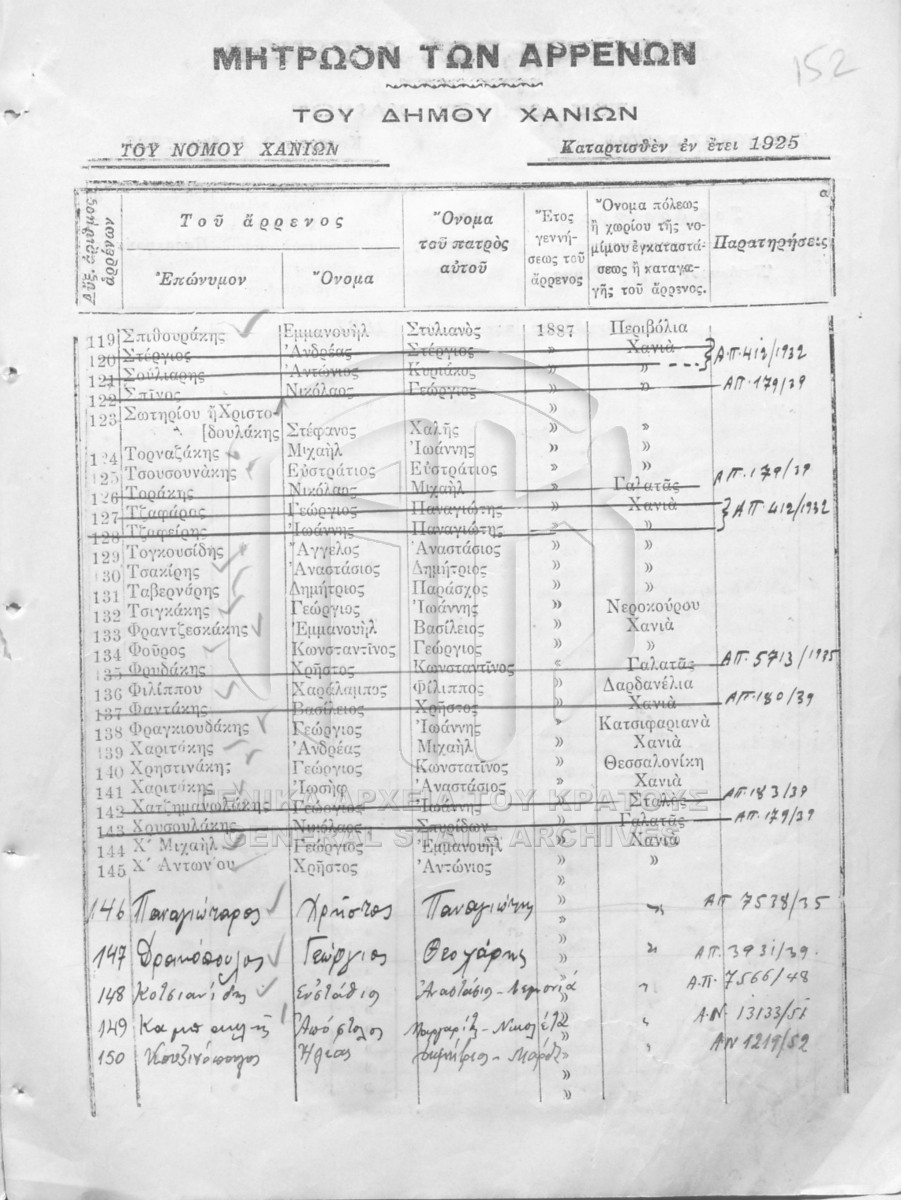 152
ΜΗΤΡΩΟΝ ΤΩΝ ΑΡΡΕΝΩΝ
ΤΟΥ ΔΗΜΟΥ ΧΑΝΙΩΝ
ΤΟΥ ΝΟΜΟΥ ΧΑΝΙΩΝ Καταρτισθὲν ἐν ἔτει 1925
Τοῦ ἄρρενος
Ἐπώνυμον Ὄνομα
Ὄνομα
τοῦ πατρὸς
αὐτοῦ
Ἔτος
γεννή-
σεως τοῦ
ἄρρενος
Ὄνομα πόλεως
ἢ χωρίου τῆς νο-
μίμου ἐγκαταστά-
σεως ἢ καταγω-
γῆς τοῦ ἄρρενος.
Παρατηρήσεις
α
119 Σπιθουράκης Ἐμμανουὴλ Στυλιανὸς 1887 Περιβόλια
120 Στέργιος Ἀνδρέας Στέργιος » Χανιὰ Α·Π· 412/1932
121 Σούλιαρης Ἀντώνιος Κυριάκος » »
122 Σπῖνος Νικόλαος Γεώργιος » » ΑΠ· 179/39
123 Σωτηρίου ἢ Χριστο- »
[δουλάκης Στέφανος Χαλῆς » »
124 Τορναζάκης Μιχαὴλ Ἰωάννης » »
125 Τσουσουνάκης Εὐστράτιος Εὐστράτιος » »
126 Τοράκης Νικόλαος Μιχαὴλ » Γαλατᾶς ΑΠ. 179/39
127 Τζαφάρας Γεώργιος Παναγιώτης » Χανιὰ Α·Π· 412/1932
128 Τζαφείρης Ἰωάννης Παναγιώτης » »
129 Τογκουσίδης Ἄγγελος Ἀναστάσιος » »
130 Τσακίρης Ἀναστάσιος Δημήτριος » »
131 Ταβερνάρης Δημήτριος Παράσχος » »
132 Τσιγκάκης Γεώργιος Ἰωάννης » Νεροκούρου
133 Φραντζεσκάκης Ἐμμανουὴλ Βασίλειος » Χανιὰ
134 Φοῦρος Κωνσταντῖνος Γεώργιος » »
135 Φρυδάκης Χρῆστος Κωνσταντῖνος « Γαλατᾶς ΑΠ. 5713/1935
136 Φιλίππου Χαράλαμπος Φίλιππος » Δαρδανέλια
137 Φαντάκης Βασίλειος Χρῆστος » Χανιὰ ΑΠ· 180/39
138 Φραγκιουδάκης Γεώργιος Ἰωάννης » Κατσιφαριανὰ
139 Χαριτάκης Ἀνδρέας Μιχαὴλ » Χανιὰ
140 Χρηστινάκης Γεώργιος Κωνστατῖνος » Θεσσαλονίκη
141 Χαριτάκης Ἰωσὴφ Ἀναστάσιος » Χανιὰ
142 Χατζημανωλάκης Γεώργιος Ἰωάννης » Σταλὴς ΑΠ· 183/39
143 Χρυσουλάκης Νικόλαος Σπυρίδων » Γαλατᾶς ΑΠ· 179/39
144 Χ΄ Μιχαὴλ Γεώργιος Ἐμμανουὴλ » Χανιὰ
145 Χ΄ Ἀντωνίου Χρῆστος Ἀντώνιος » »
ΓΕΝΙΚΑ ΑΡΧΕΙΑ ΤΟΥ ΚΡΑΤΟΥΣ
GENERAL STATE ARCHIVES
146 Παναγιώταρος Χρῆστος Παναγιώτης » » ΑΠ 7538/35
147 Δρακόπουλος Γεώργιος Θεολόγης » » ΑΠ. 3931/39.
148 Κοτσιανίδης Εὐστάθιος Ἀναστάσιος » » Α.Π. 7566/48
149 Ἀπόστολος Μαργαρίτης - Νικολέτα » » Α.Ν. 13133/51
150 Ἠλίας » » ΑΝ 1219/52
»
»